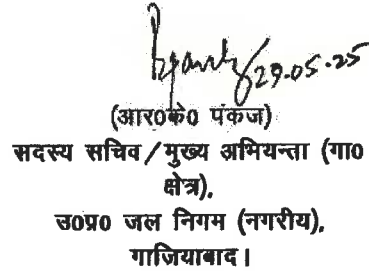 29.05.25
(आर0के0 पंकज)
सदस्य सचिव/मुख्य अभियन्ता (गा0
क्षेत्र),
उ0प्र0 जल निगम (नगरीय),
गाजियाबाद।